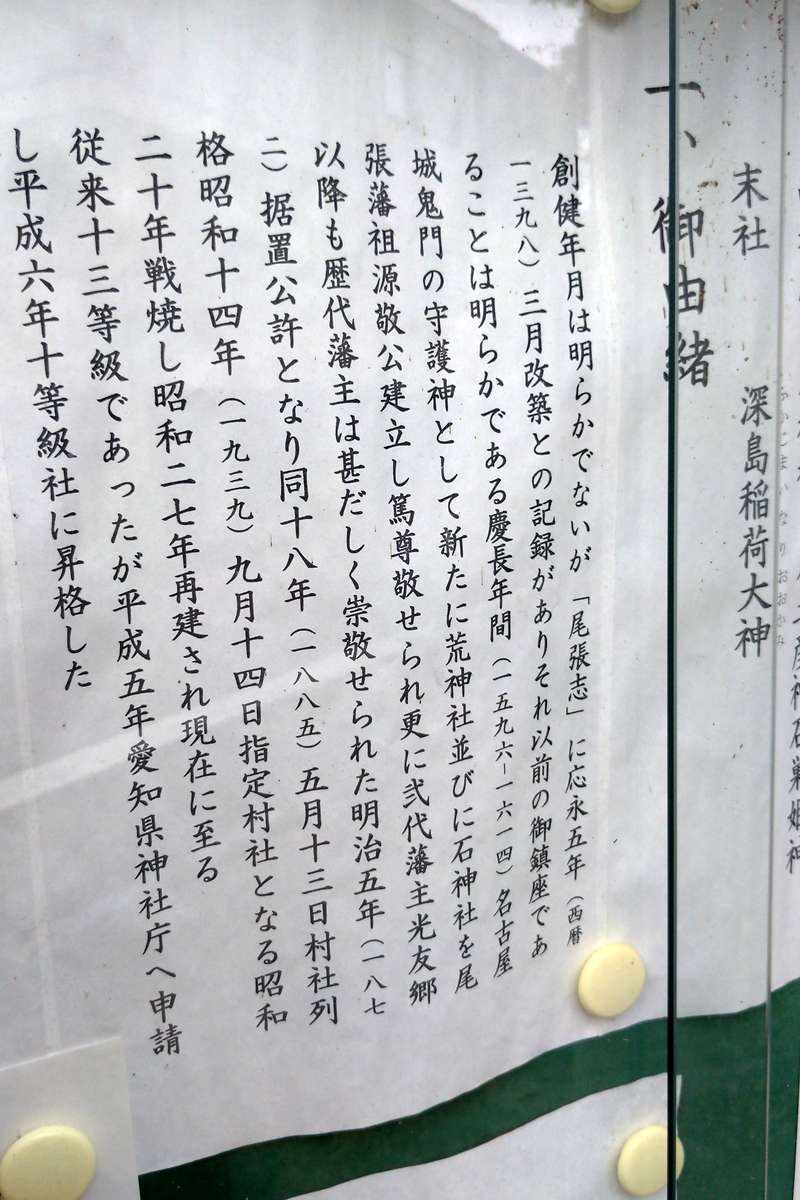 土産神石巣姫神
末社　深島稲荷大神
ふかこまいなりおおかみ
一、御由緒
創健年月は明らかでないが「尾張志」に応永五年（西暦
一三九八）三月改築との記録がありそれ以前の御鎮座であ
ることは明らかである慶長年間（一五九六－一六一四）名古屋
城鬼門の守護神として新たに荒神社並びに石神社を尾
張藩祖源敬公建立し篤尊敬せられ更に弐代藩主光友郷
以降も歴代藩主は甚だしく崇敬せられた明治五年（一八七
二）据置公許となり同十八年（一八八五）五月十三日村社列
格昭和十四年（一九三九）九月十四日指定村社となる昭和
二十年戦焼し昭和二七年再建され現在に至る
従来十三等級であったが平成五年愛知県神社庁へ申請
し平成六年十等級社に昇格した